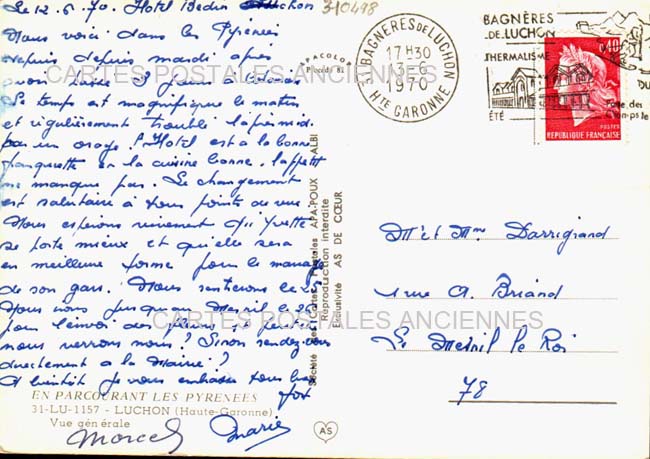 Le 12.6.70. Hotel Luchon
310498
Nous voici dans les Pyrénées
depuis depuis mardi après
avoir passé 3 jours à
Le temps est magnifique le matin
et régulièrement troublé l'après midi
par un orage. l'Hotel est à la bonne
franquette en la cuisine bonne. l'appétit
ne manque pas. Le changement
est salutaire à tous points de vue.
Nous espérons vivement qu'Yvette
se porte mieux et qu'elle sera
en meilleure forme pour le mariage
de son gars. Nous rentrerons le 25
nous jusqu'au Mesnil le 26
pour l'envoi des fleurs
nous verrons nous? Sinon rendez-vous
directement à la Mairie?
A bientôt je vous embrasse tous bien
fort
Marcel Marie
EN PARCOURANT LES PYRENEES
31-LU-1157 - LUCHON (Haute-Garonne)
Vue générale
CARTES POSTALES ANCIENNES
CARTES POSTALES ANCIENNES
APA-POUX ALBI
Reproduction interdite
Exclusivité AS DE CŒUR
AS
31 BAGNERES DE LUCHON
17H30
13-6
1970
HTE GARONNE
BAGNÈRES
DE LUCHON
THERMALISME
ÉTÉ
0,40
POSTES
REPUBLIQUE FRANÇAISE
Mr et Mme Darrigrand
1 rue A. Briand
Le Mesnil le Roi
78